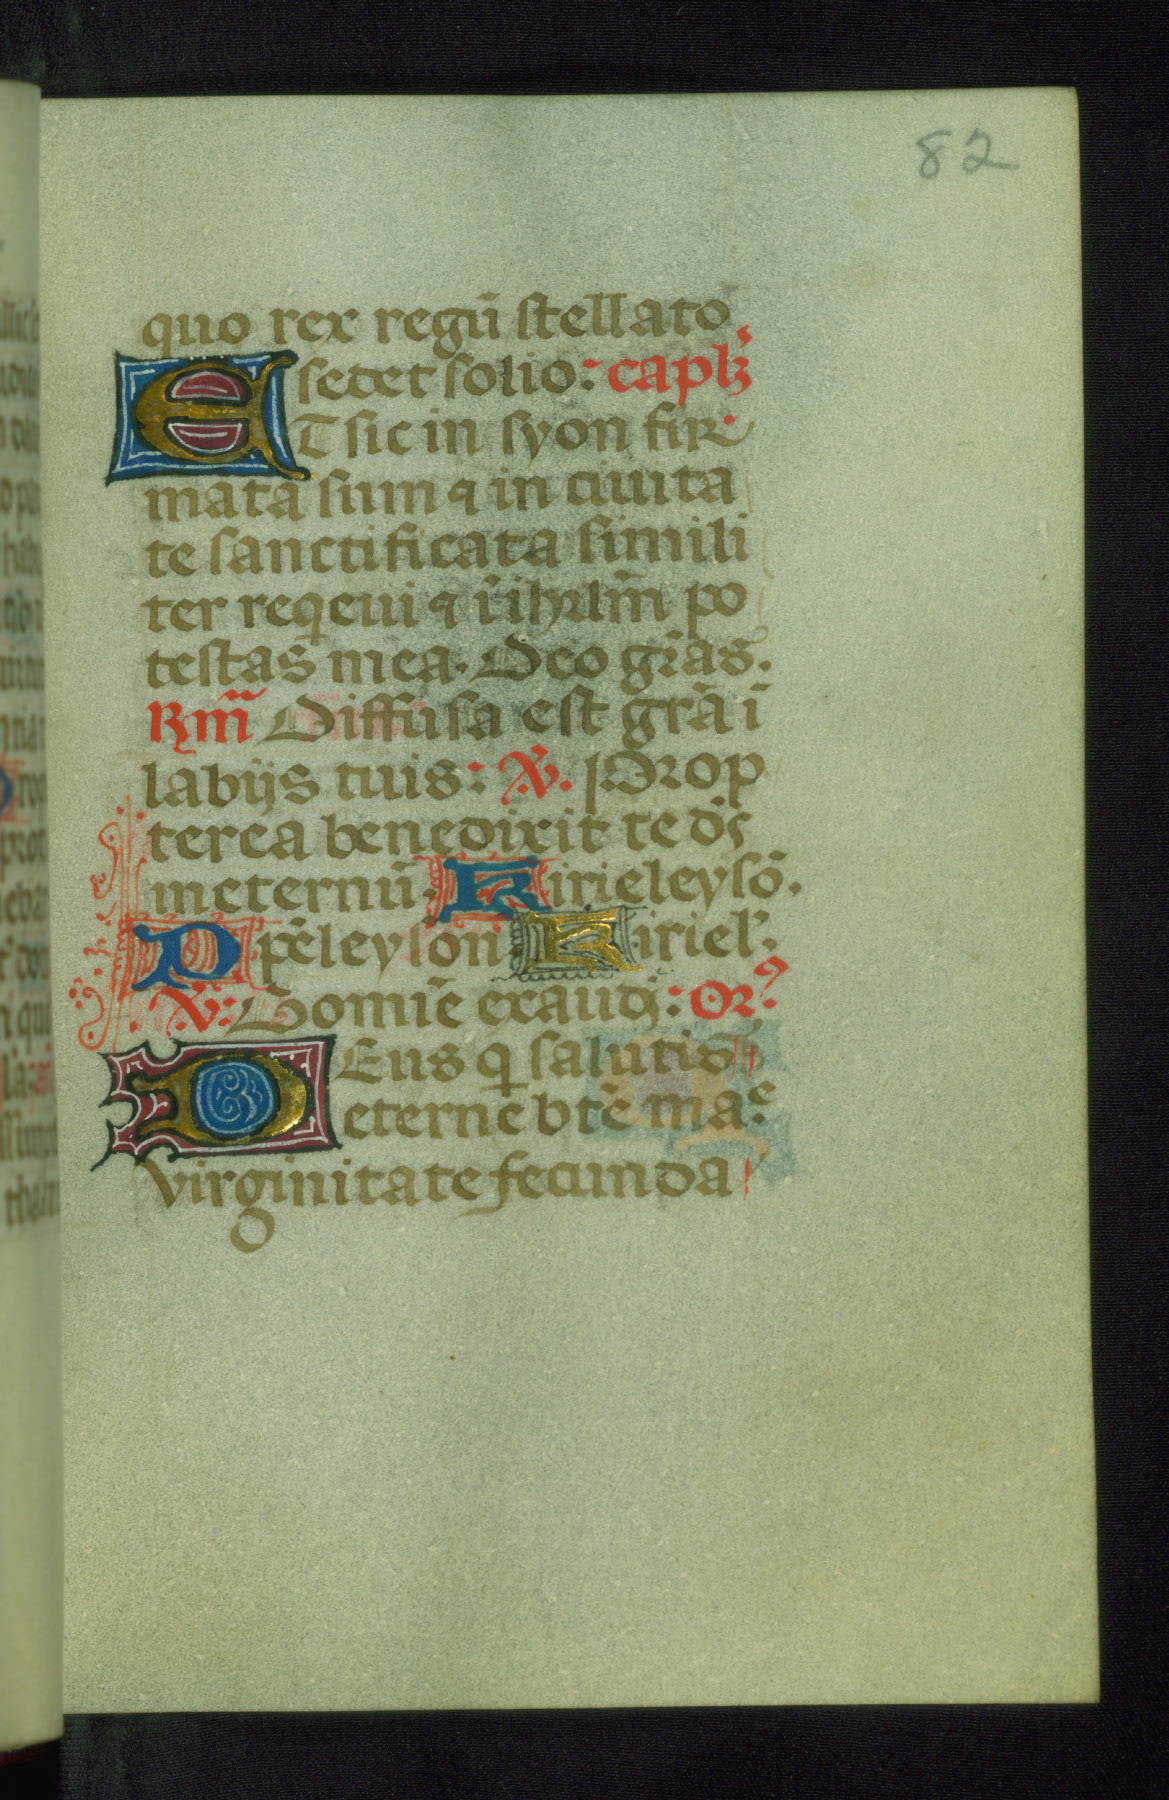 82
quo rex regū stellato
sedet solio: capl's
ET sic in syon fir
mata sum ⁊ in ciuita
te sanctificata simili
ter reqeui ⁊ ī ihrlm̄ po
testas mea. Deo grãs.
Rm̃ Diffusa est grã ī
labijs tuis: V. Prop
terea benedixit te dš
ineternū. Kirieleysō.
Xp̄eleyson. Kiriel'.
V. Domīe exaudj: Or̃
DEus q salutis
eterne btē mae
virginitate fecunda